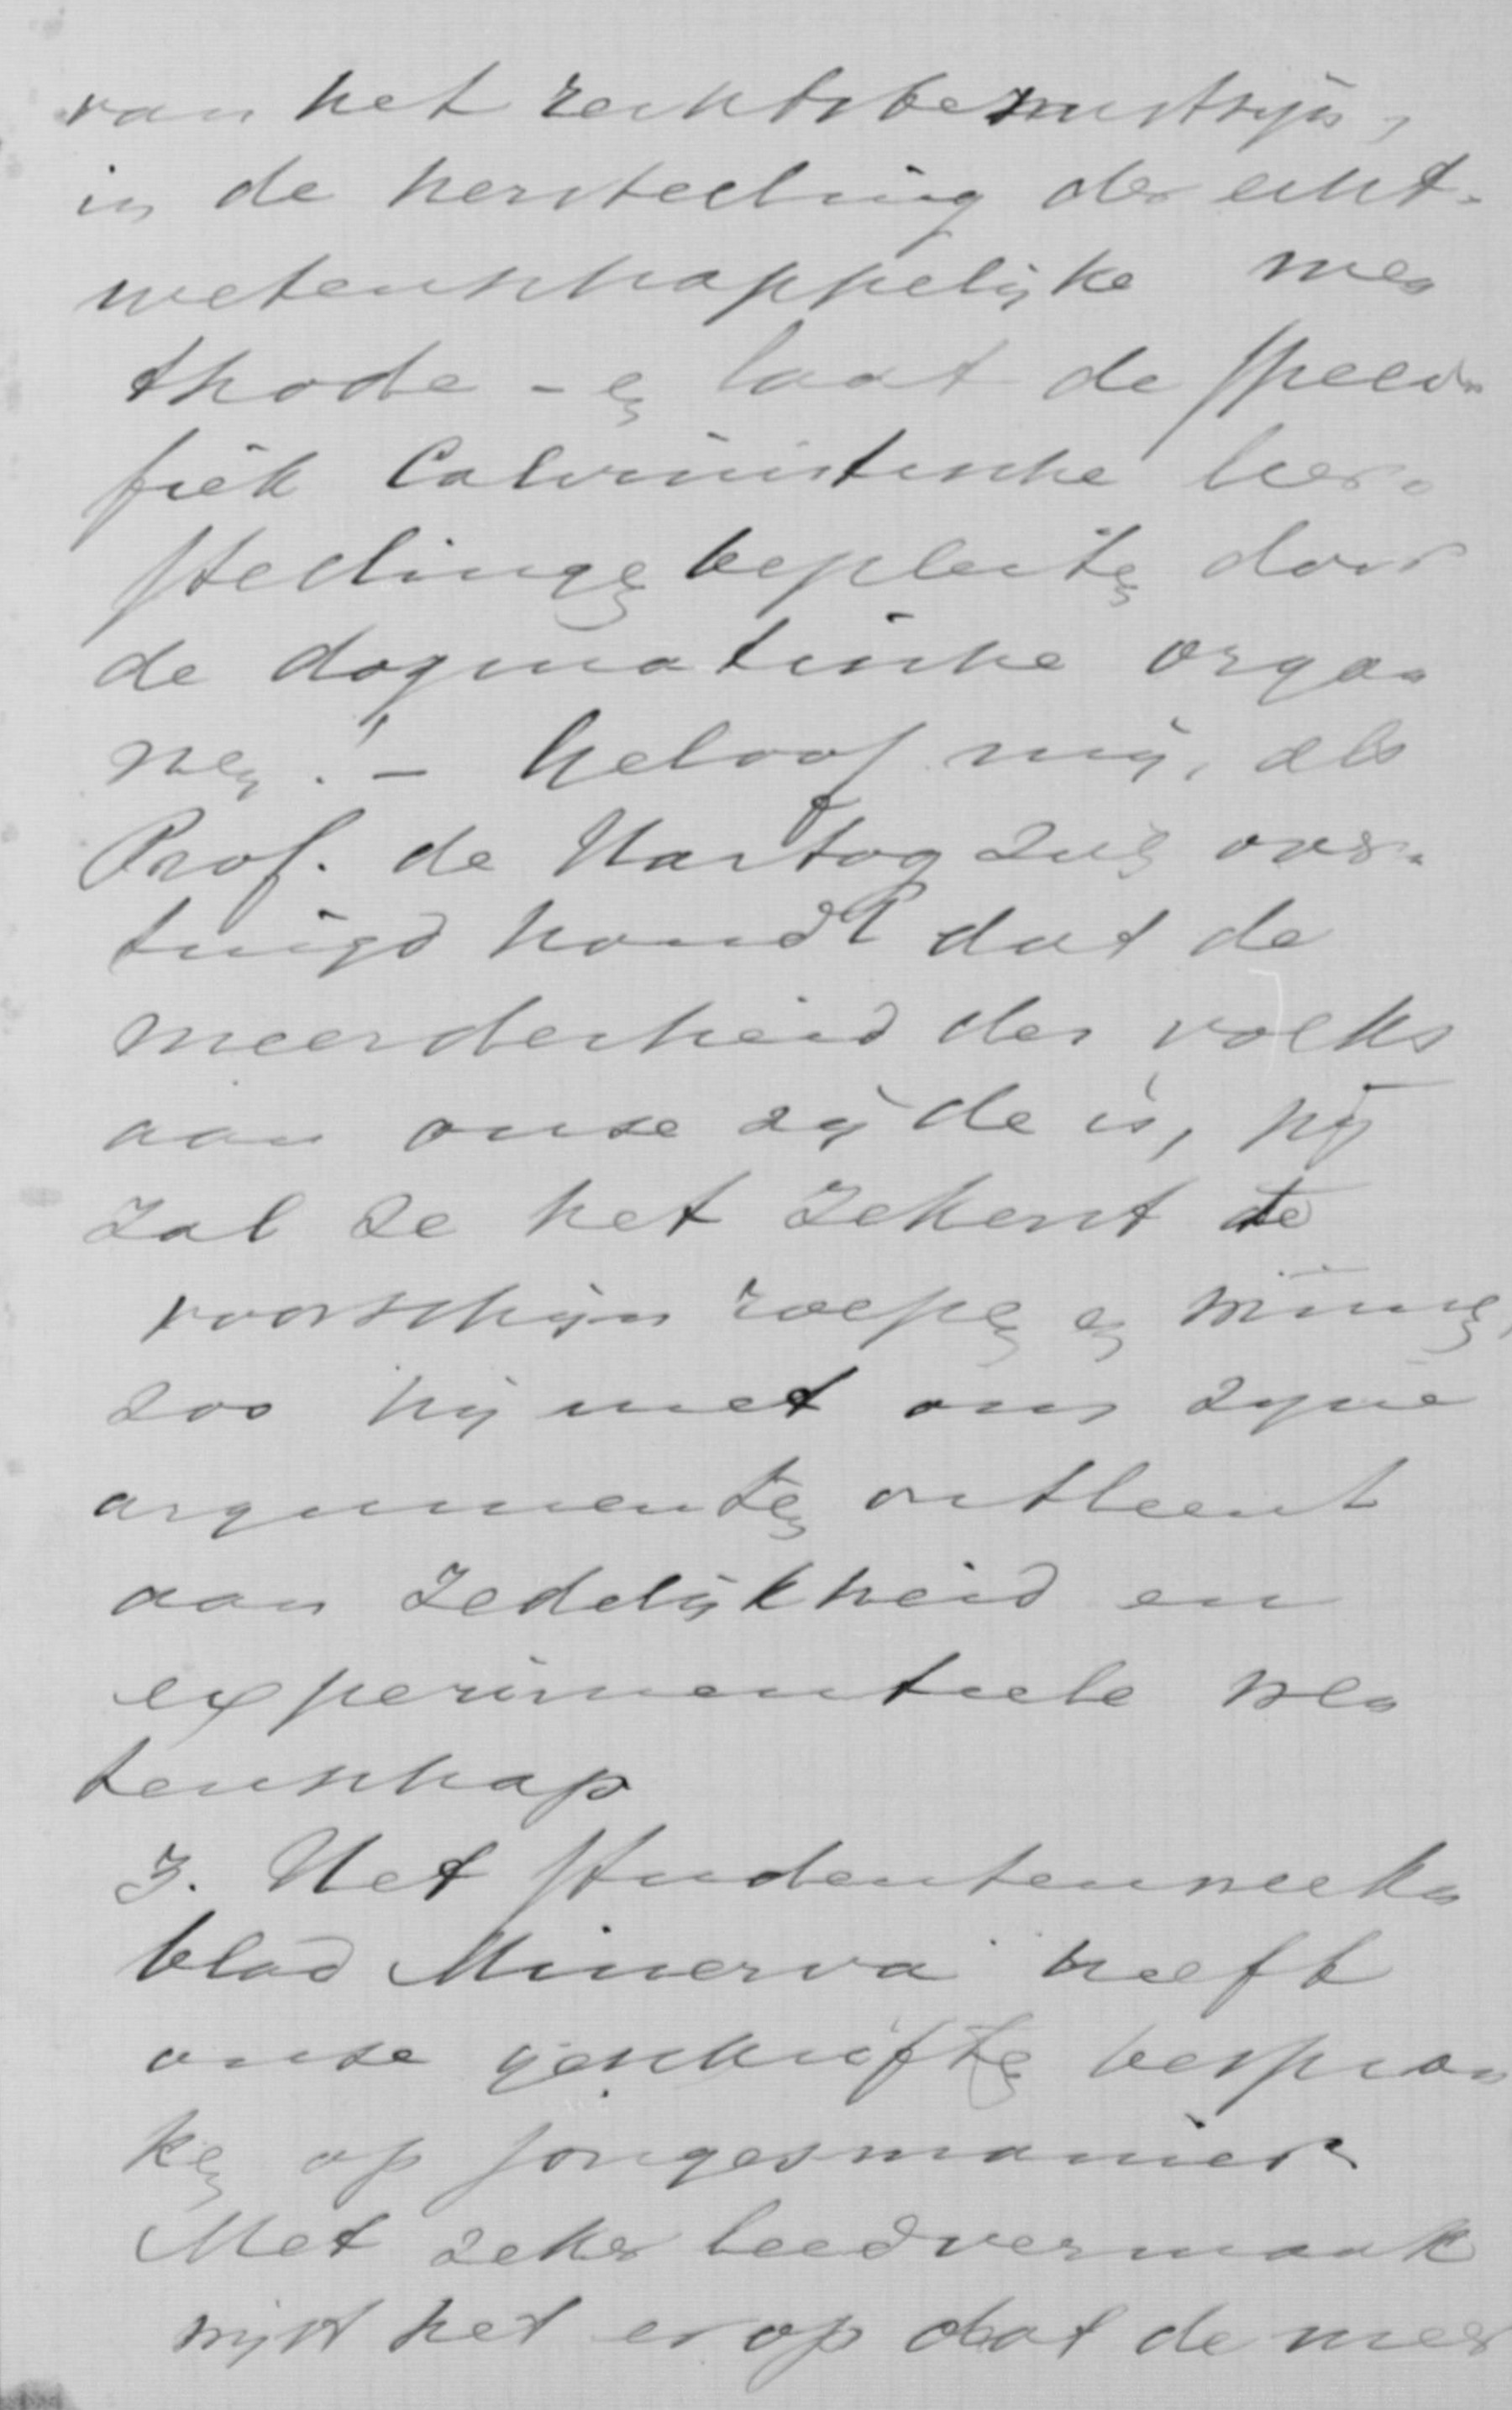 van het rechtsbewustzijn,
in de herstelling der echt-
wetenschappelijke me-
thode - en laat de speci-
fiek Calvinistische leer-
stellingen bepleiten door
de dogmatische orga-
nen! - Geloof mij, als
Prof. de Hartog zich over-
tuigd houdt dat de
meerderheid des volks
aan onze zijde is, hij
zal ze het zekerst te
voorschijn roepen en winnen,
zoo hij met ons zijne
argumenten ontleent
aan zedelijkheid en
experimenteele we-
tenschap
3. Het studentenweek-
blad Minerva heeft
onze geschriften bespro-
ken op jongesmanier.
Met zeker leedvermaak
wijst het erop dat de mee